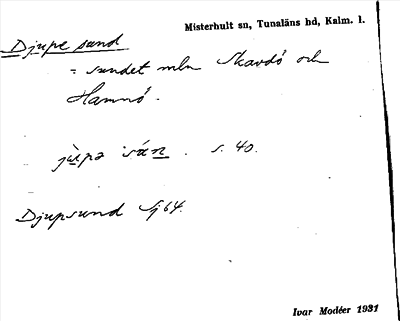 Misterhult sn, Tunaläns hd, Kalm. l.
Djupe sund
= sundet mln Skavdö och
Hamnö.
jùpə sún. s. 40.
Djupsund Sj 64.
Ivar Modéer 1931